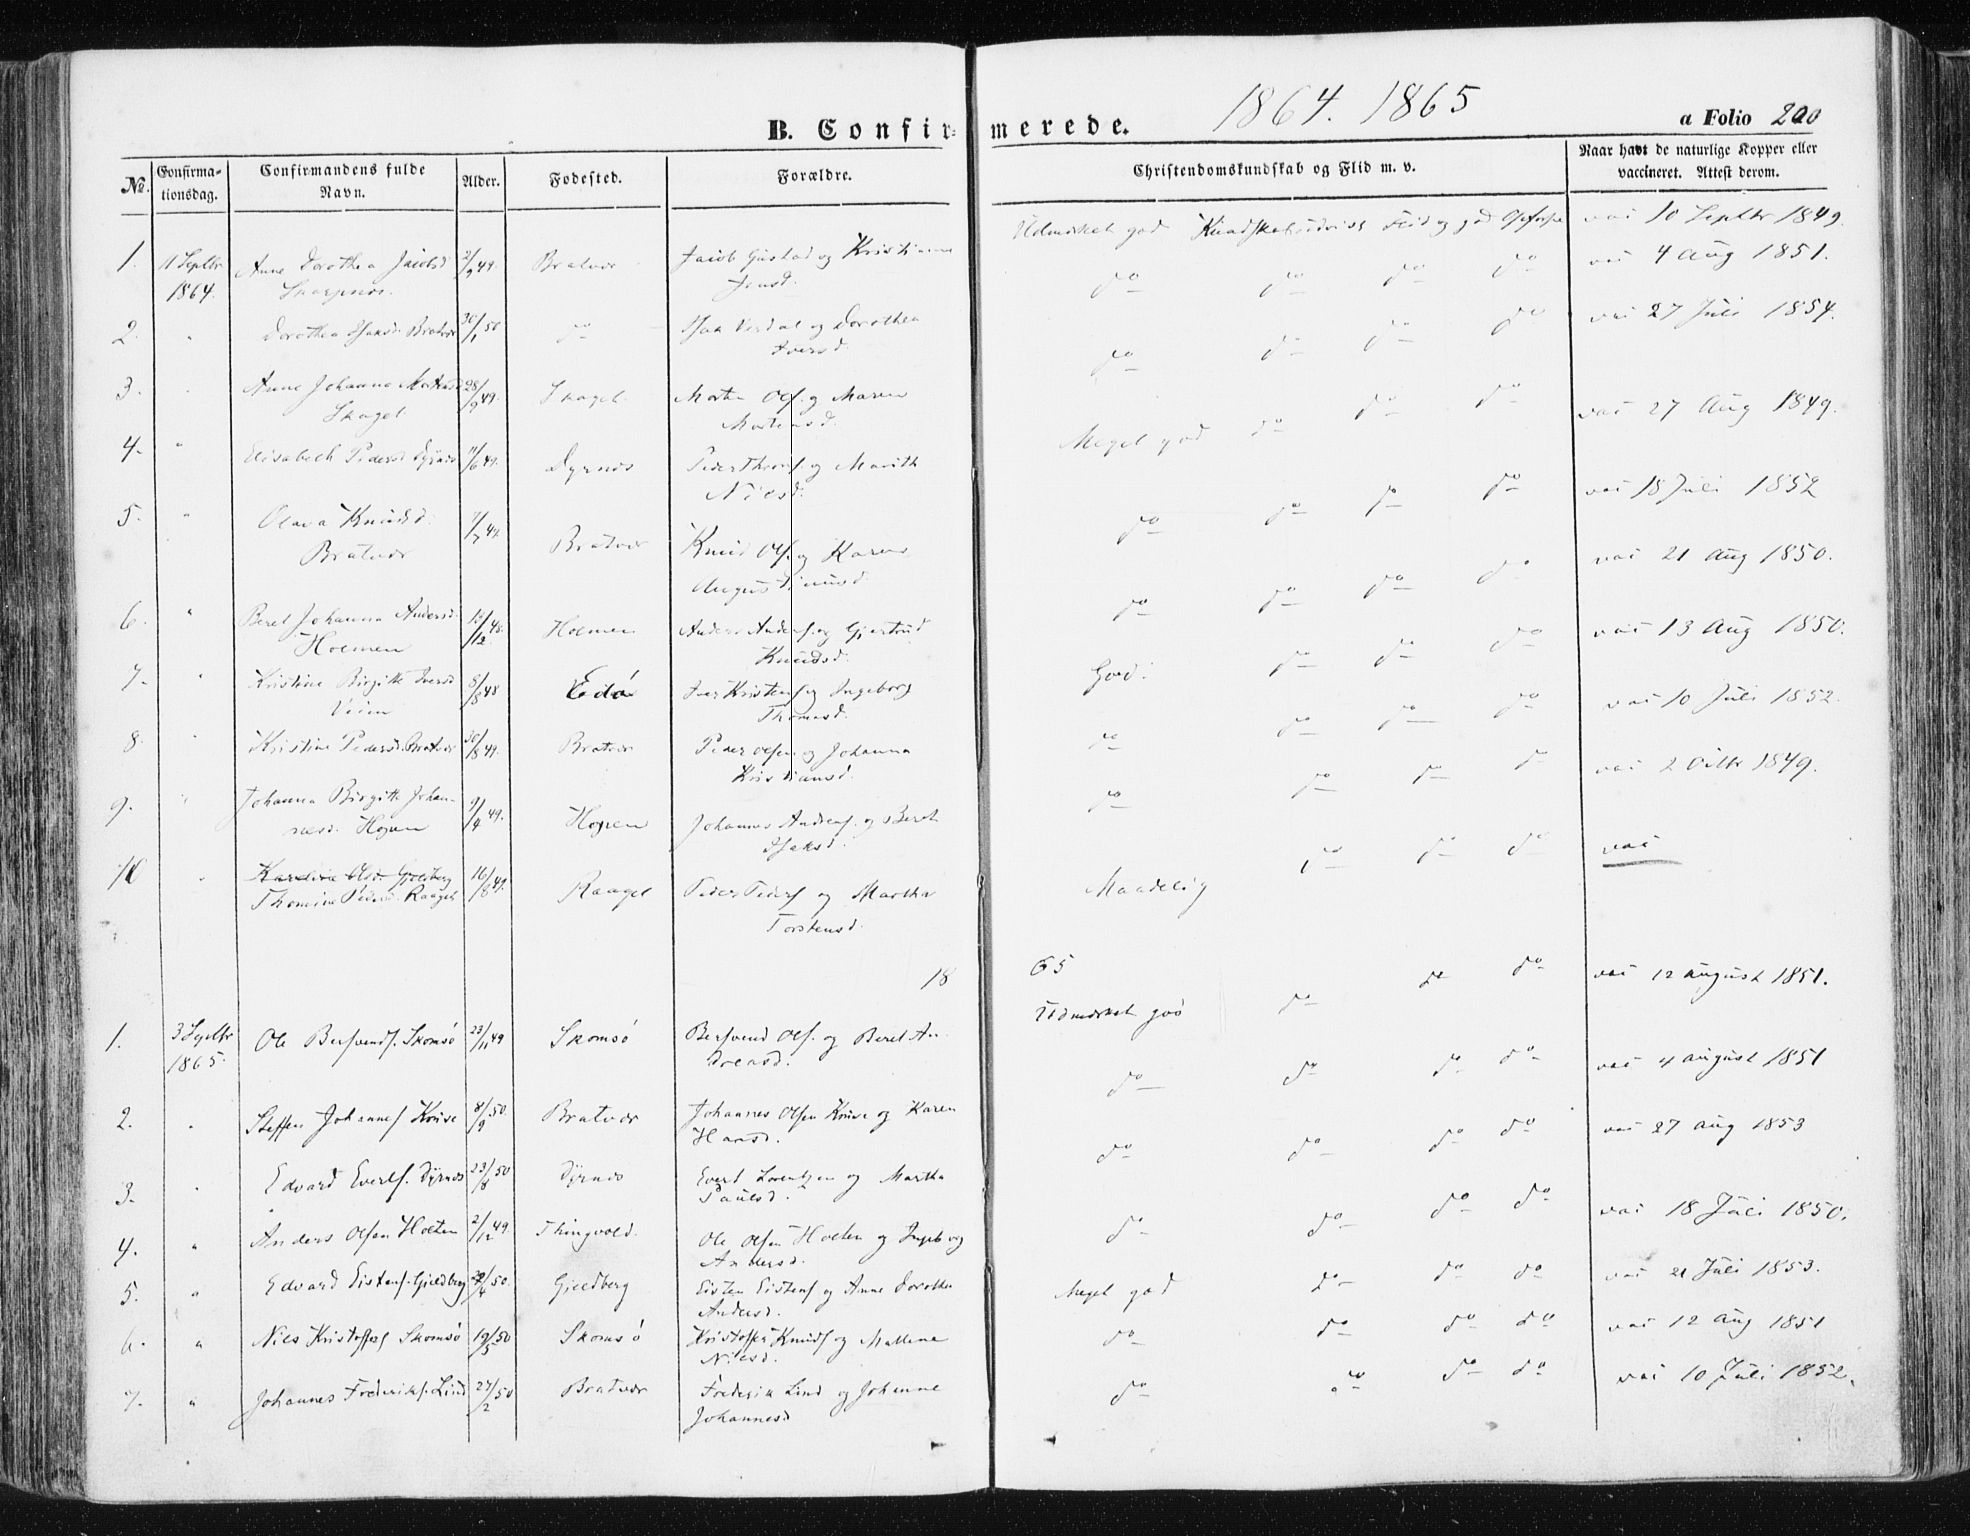 1864. 1865
B. Confirmerede.
a Folio 200
No.
Confirmationsdag.
Confirmandens fulde Navn.
Alder.
Fødested.
Forældre.
Christendomskundskab og Flid m. v.
Naar havt de naturlige Kopper eller vaccineret. Attest derom.
1. 11 Septbr 1864. Anne Dorothea Jacobsd 2/9 49. Bratvær Jacob Gustad og Kristianne Udmærket god Flid og god vac 10 Septbr 1849.
Skarpnes. Jensd.
2. " Dorothea Isaksd. Bratvær 30/1 50 do Isak Verdal og Dorothea do do do do vac 4 Aug 1851.
Iversd.
3. " Anne Johanna Mortensd 28/9 49. Skagel Morten Ols. og Maren do do do do vac 27 Juli 1854.
Skagel Mortensd.
4. " Elisabeth Pedersd Dyrnes 11/6 49. Dyrnes Peder Thors. og Marith Meget god do do do vac 27 Aug 1849.
Nilsd.
5. " Olava Knudsd. 7/7 49. Bratvær Knud Ols. og Karen do do do do vac 18 Juli 1852
Bratvær Augustinusd.
6. " Beret Johanna Andersd. 13/12 48. Holmen Anders Anders. og Gjertrud do do do do vac 21 Aug 1850.
Holmen Knudsd.
7. " Kristine Birgitte Iversd 5/8 48 Edø Iver Kristens. og Ingeborg God. do do do vac 13 Aug 1850.
Veien Thomasd.
8. " Kristine Pedersd. Bratvær 30/8 49. Bratvær Peder Olsen og Johanna do do do do vac 10 Juli 1852.
Kristiansd.
9. " Johanna Birgitte Johan- 9/4 49. Hopen Johannes Anders. og Beret do do do do vac 2 Octbr 1849.
nesd. Hopen Isaksd.
10 " Karelina Olsd. Gjeldberg 16/8 49. Raaget Peder Peders. og Martha Maadelig do do do vac
Thomine Pedersd. Raaget Torstensd.
18 65
1. 3 Septbr 1865. Ole Bersvends. Skomsø 23/11 49 Skomsø Bersvend Ols. og Beret An- Udmærket god do do do vac 12 august 1851.
dreasd.
2. " Steffen Johannes. Kruse 8/9 50. Bratvær Johannes Olsen Kruse og Karen do do do do vac 4 august 1851
Hansd.
3. " Edvard Everts. Dyrnes 23/8 50 Dyrnes Evert Lorentzen og Martha do do do do vac 27 aug 1853
Paulsd.
4. " Anders Olsen Holten 2/12 49 Thingvold. Ole Olsen Holten og Ingeborg do do do do vac 18 Juli 1850.
Andersd.
5. " Edvard Eistens. Gjeldberg /4 50. Gjeldberg Eisten Eistens. og Anne Dorothea Meget god do do do vac 21 Juli 1853.
Andersd.
6. " Nils Kristoffers Skomsø 19/5 50 Skomsø Kristoffer Knuds. og Mallena do do do do vac 12 Aug 1851
Nilsd.
7. " Johannes Frederiks. Lind 27/2 50 Bratvær Frederik Lind og Johanne do do do do vac 10 Juli 1852.
Johannesd